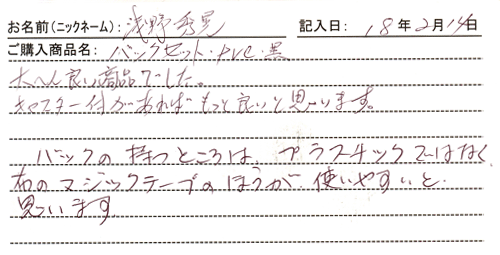 お名前(ニックネーム): 浅野秀晃 記入日: 18年2月14日
ご購入商品名: バックセット・pvc・黒
大へん良い商品でした。
キャスター付があればもっと良いと思います。
バックの持つところは、プラスチックではなく、
布のマジックテープのほうが、使いやすいと
思います